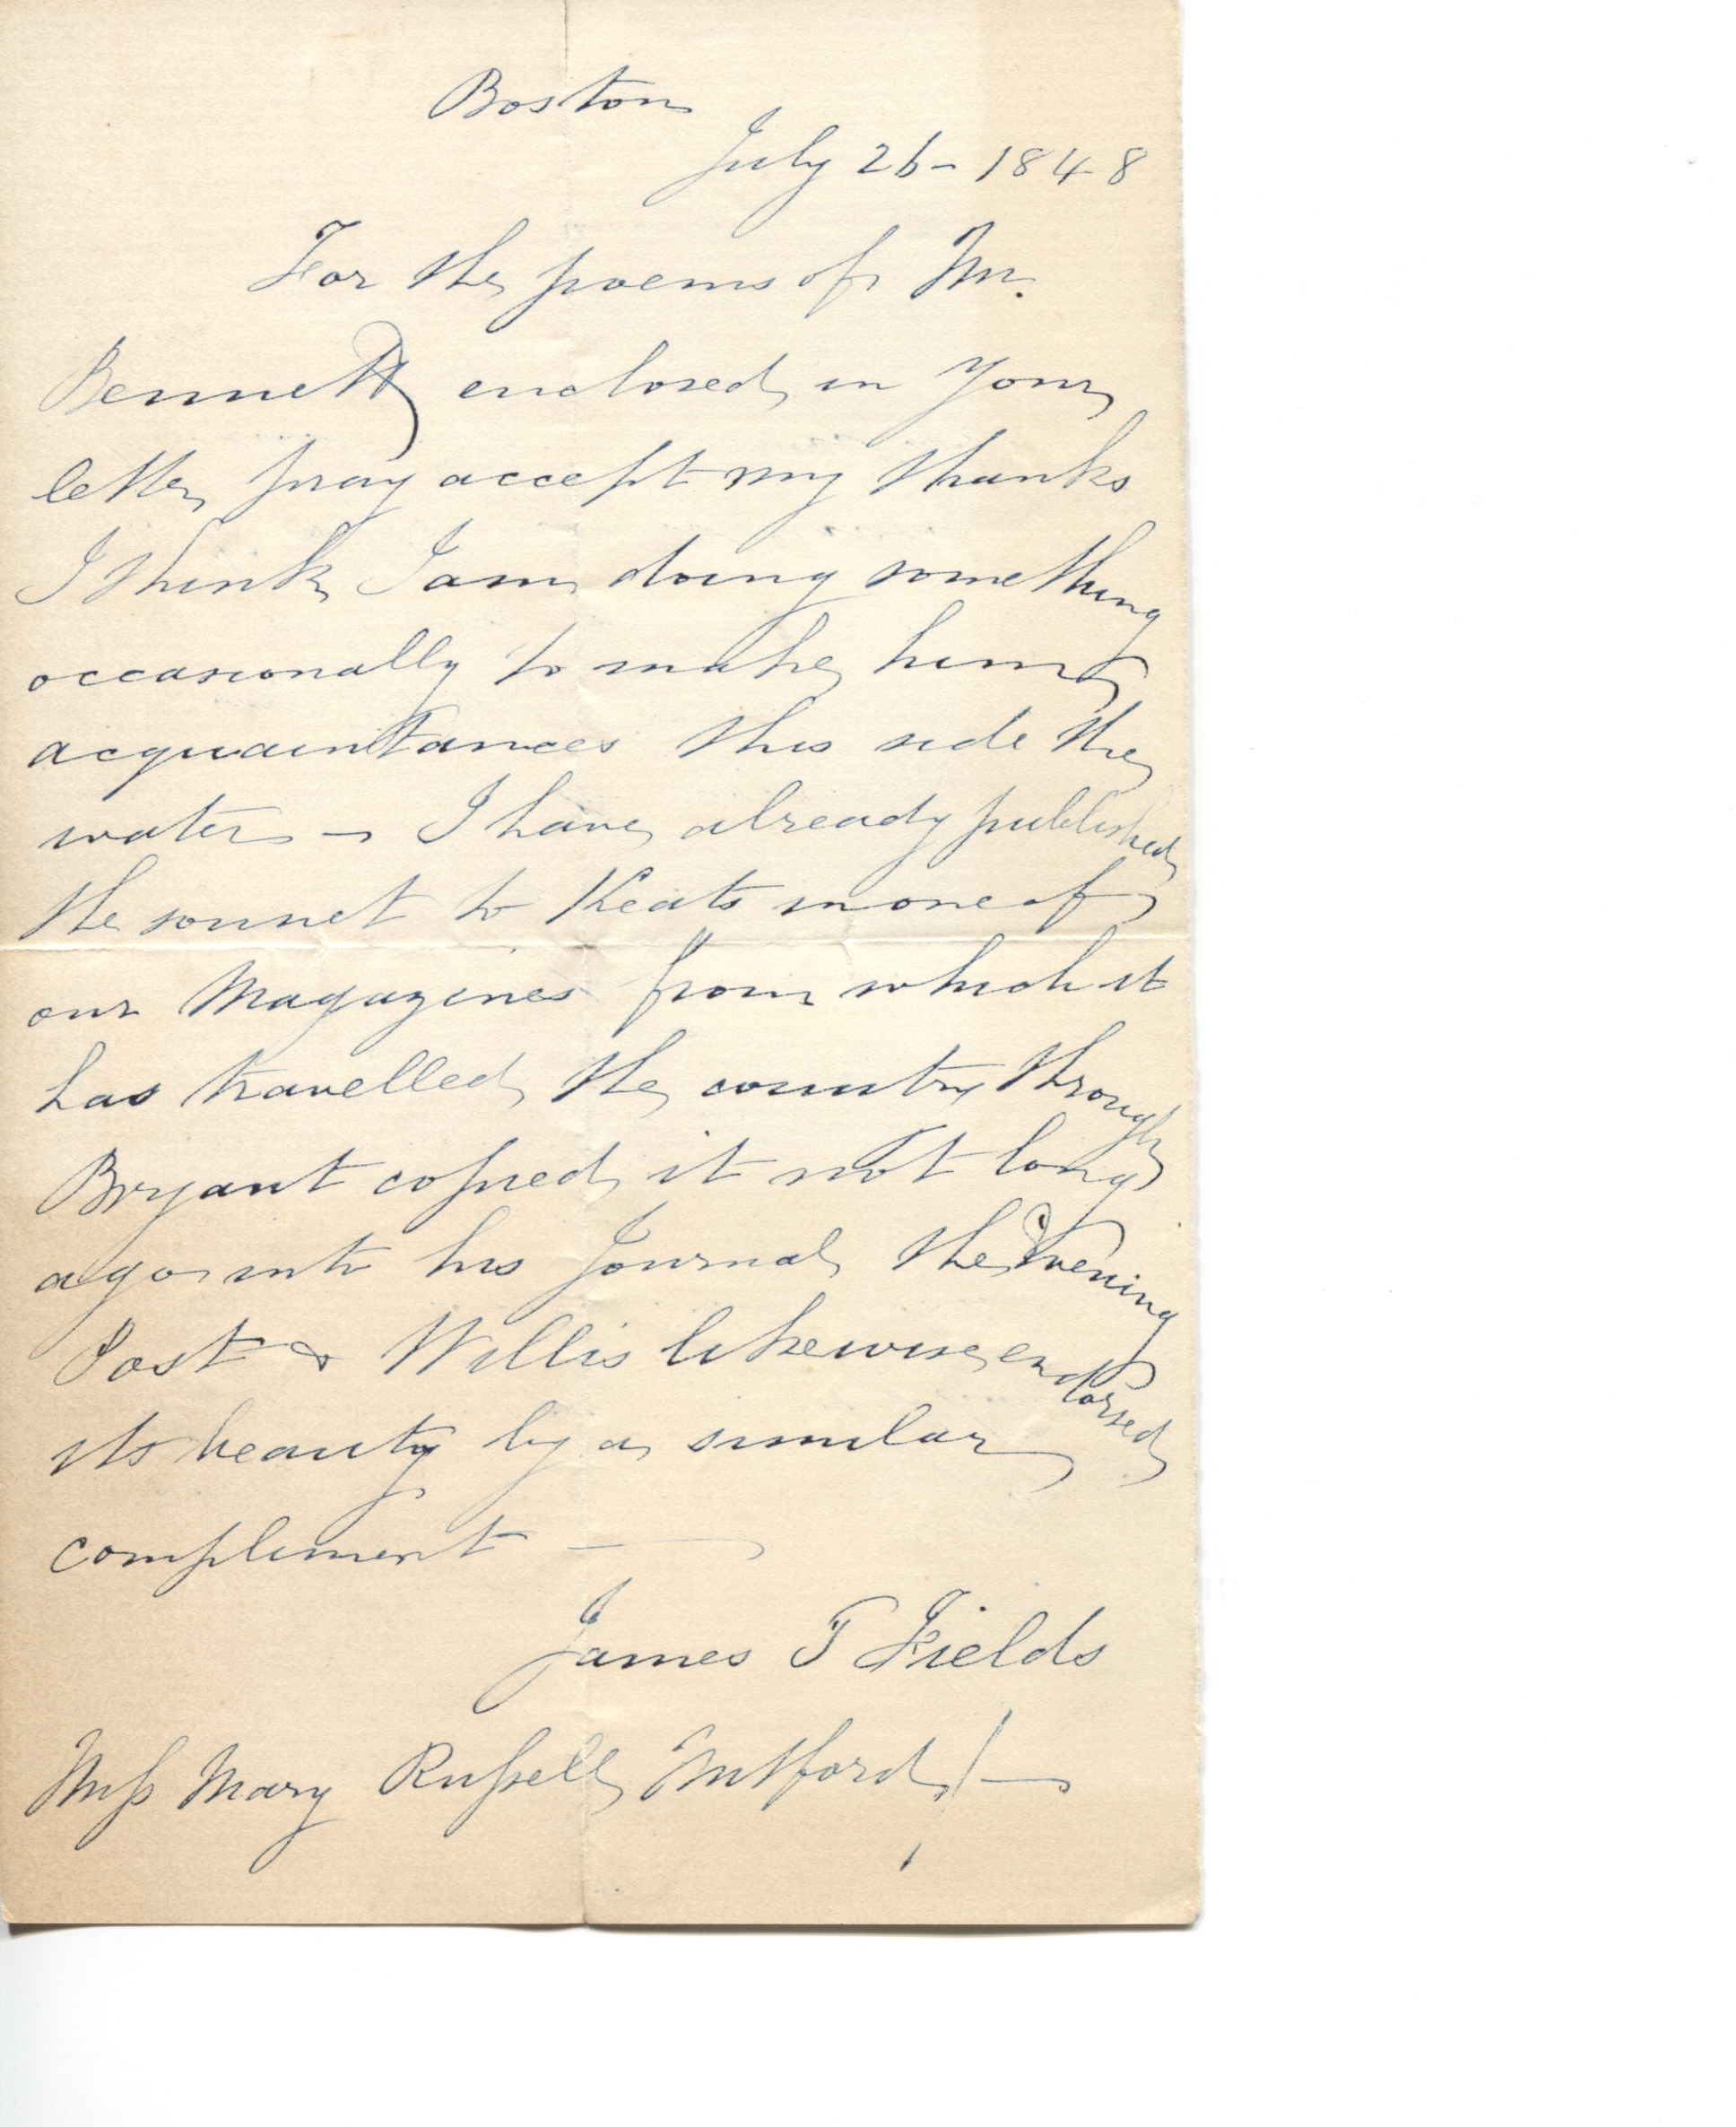 Boston
July 26 - 1848
For the poems of Mr.
Bennett enclosed in your
letter pray accept my thanks
I think I am doing something
occasionally to make him
acquaintances this side the
water - I have already published
the sonnet to Keats in one of
our Magazines from which it
has travelled the country through
Bryant copied it not long
ago into his Journal the Evening
Post & Willis likewise endorsed
its beauty by a similar
compliment —
James T Fields
Miss Mary Russell Mitford / —